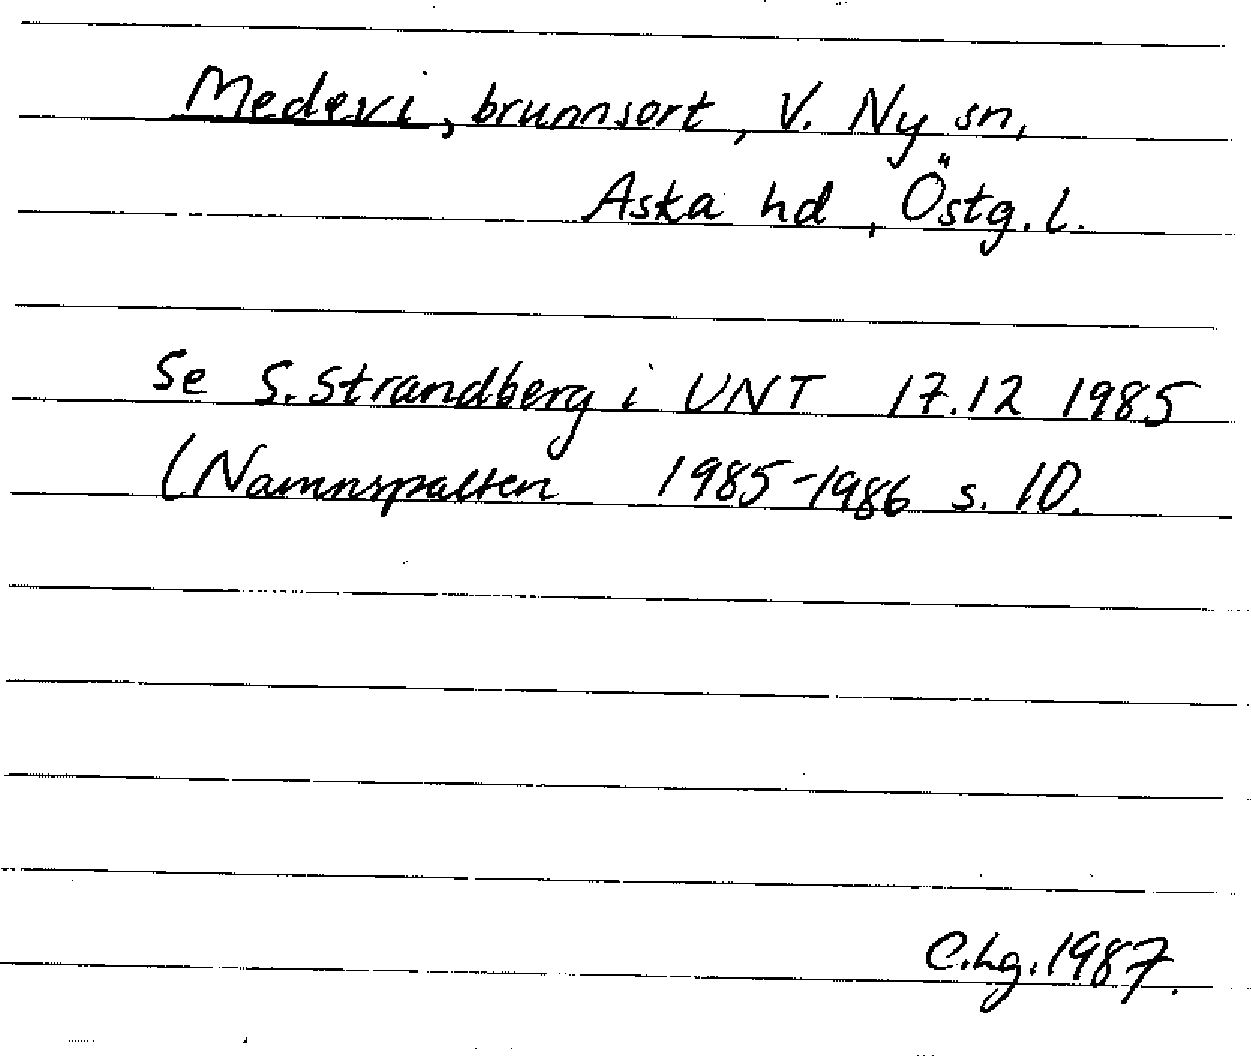 Medevi, brunnsort, V. Ny sn,
Aska hd, Östg. l.
Se S. Strandberg i UNT 17.12 1985
(Namnspalten 1985-1986 s. 10.
C.hg. 1987.